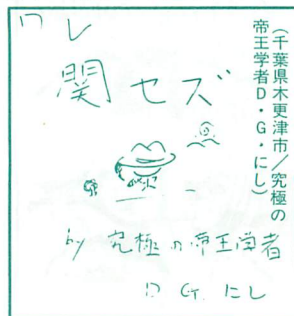 (千葉県木更津市/究極の
帝王学者D・G・にし)
ワレ
関セズ
by 究極の帝王学者
D G. にし